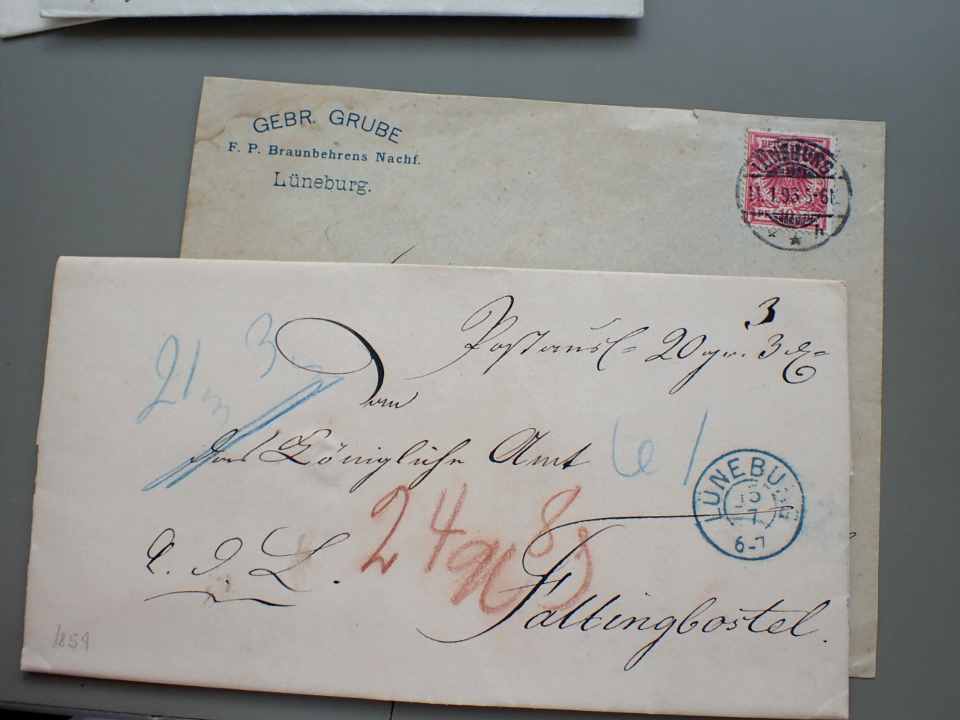 GEBR. GRUBE
F. P. Braunbehrens Nachf.
Lüneburg.
LÜNEBURG
11.1.95 5-6N.
h
3
Postausl= 20 gr. 3
21 3
An
das Königliche Amt
6 1
LÜNEBURG
15
7
6-7
24 8
L.
Fallingbostel.
1859